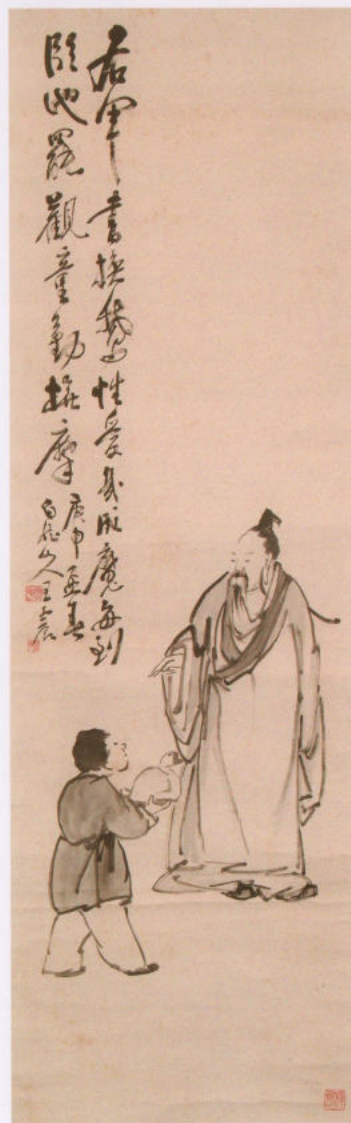 右軍書換鵞性愛幾成魔每到
臨池罷觀童勤撫摩
庚申孟春
白龍山人王震